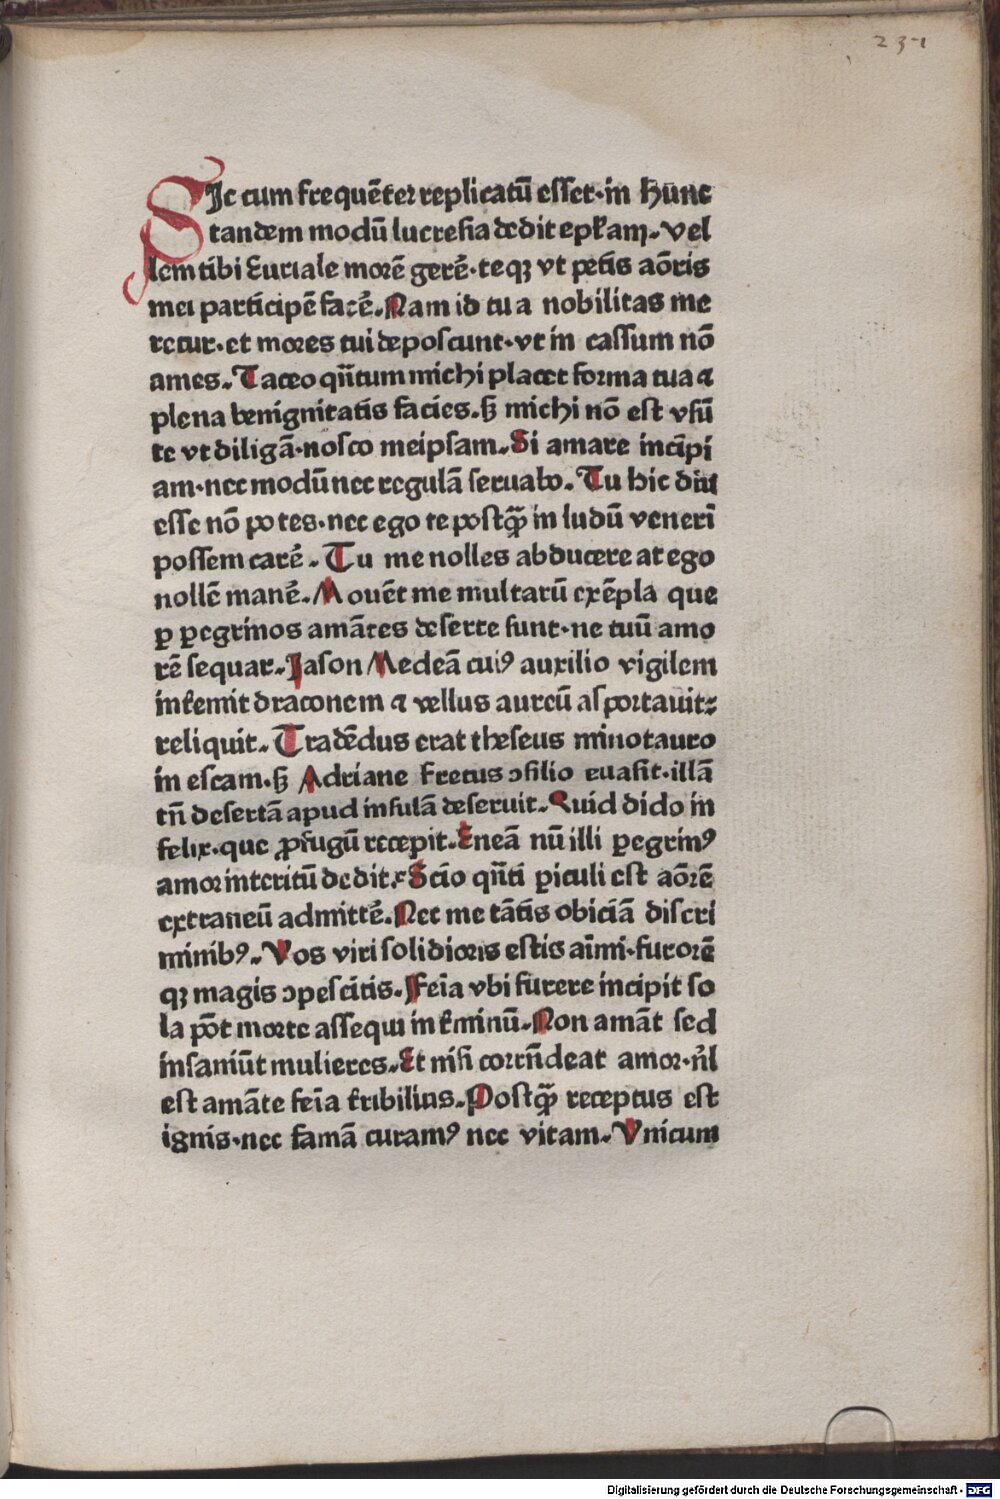 231
SIc cum frequēter replicatū esset·in hūnc
tandem modū lucresia dedit ep̄kam·Vel
lem tibi Euriale morē gerē·teqꝫ vt petis aōris
mei participē facē·Nam id tua nobilitas me
retur·et mores tui deposcunt·vt in cassum nō
ames·Taceo qn̄tum michi placet forma tua ⁊
plena benignitatis facies·sꝫ michi nō est vsū
te vt diligā·nosco meipsam·Si amare incipi
am·nec modū nec regulā seruabo·Tu hic diu
esse nō potes·nec ego te postꝗ̄ in ludū veneri
possem carē·Tu me nolles abducere at ego
nollē manē·Mouēt me multarū exēpla que
ꝑ ꝑegrinos amātes deserte sunt·ne tuū amo
rē sequar·Iason Medeā cuiꝰ auxilio vigilem
intemit draconem ⁊ vellus aureū asportauit
reliquit·Tradēdus erat theseus minotauro
in escam·sꝫ Adriane fretus ↄsilio euasit·illā
tn̄ desertā apud insulā deseruit·Quid dido in
felix·que ꝓfugū recepit·Eneā nū illi ꝑegrinꝰ
amor interitū dedit·Scio qn̄ti ꝑiculi est aōrē
extraneū admittē·Nec me tātis obiciā discri
minibꝰ·Vos viri solidioris estis aīmi·furorē
qꝫ magis ↄpescitis·Feīa vbi furere incipit so
la pōt morte assequi in t̄minū·Non amāt sed
insaniūt mulieres·Et nisi corrn̄deat amor·nl̄
est amāte feīa t̄ribilius·Postꝗ̄ receptus est
ignis·nec famā curamꝰ nec vitam·Vnicum
Digitalisierung gefördert durch die Deutsche Forschungsgemeinschaft - DFG